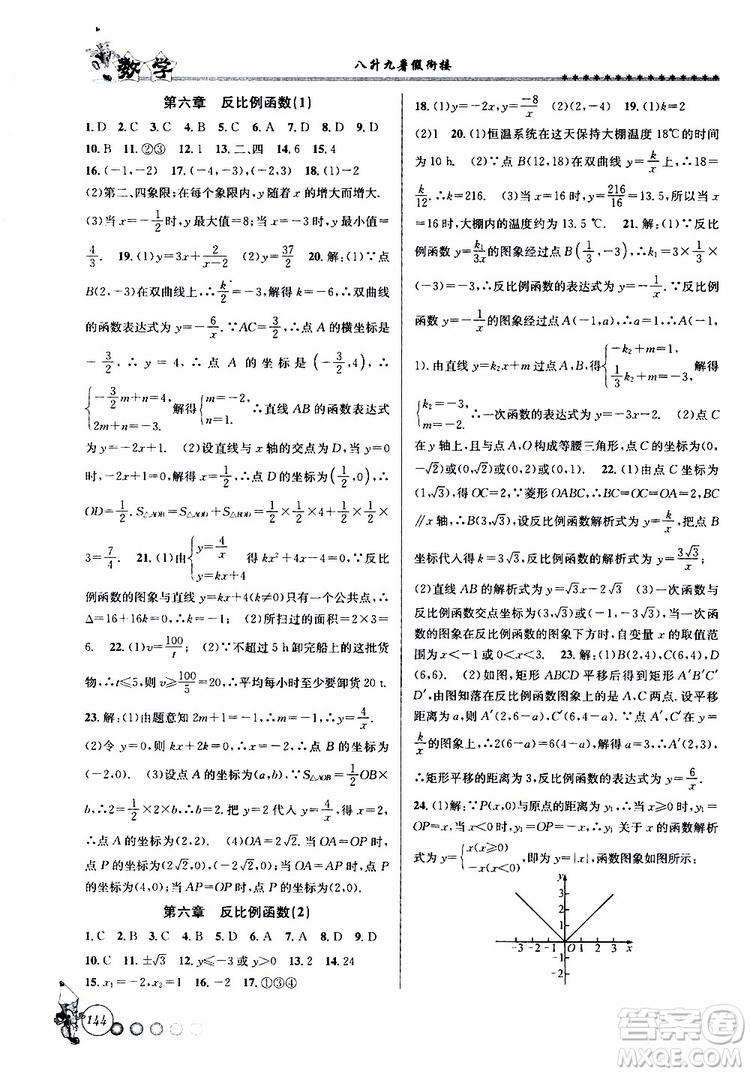 数学
八升九暑假衔接
第六章 反比例函数(1)
1.D 2.C 3.C 4.A 5.C 6.D 7.A 8.D 9.D
10.B 11.②③ 12.1 13.二、四 14.6 15.4
16.(-1,-2) 17.(-4,-3),(-2,3) 18.(1)-2
(2)第二、四象限;在每个象限内,y随着x的增大而增大.
(3)当x=-1/2时,y最大值=8;当x=-3时,y最小值=
4/3. 19.(1)y=3x+2/(x-2) (2)37/2 20.解:(1)∵点
B(2,-3)在双曲线上,∴k/2=-3,∴k=-6,∴双曲线
的函数表达式为y=-6/x.∵AC=3/2,∴点A的横坐标是
-3/2,∴点A的坐标是(-3/2,4),∴
{-3/2m+n=4, 2m+n=-3, 解得{m=-2, n=1. ∴直线AB的函数表达式
为y=-2x+1. (2)设直线与x轴的交点为D,当y=0
时,-2x+1=0,解得x=1/2,∴点D的坐标为(1/2,0),∴
OD=1/2.S△AOB=S△AOD+S△BOD=1/2×1/2×4+1/2×1/2×
3=7/4. 21.(1)由{y=4/x, y=kx+4 得kx+4=4/x,∵反比
例函数的图象与直线y=kx+4(k≠0)只有一个公共点,∴
Δ=16+16k=0,∴k=-1. (2)所扫过的面积=2×3=
6. 22.(1)v=100/t (2)∵不超过5 h卸完船上的这批货
物,∴t≤5,则v≥100/5=20,∴平均每小时至少要卸货20 t.
23.解:(1)由题意知2m+1=-1,∴m=-1,∴y=4/x.
(2)令y=0,则kx+2k=0,∴x=-2. (3)设点A的坐标为(a,b),∵S△AOB=1/2OB×
b,∴1/2×2×b=2,∴b=2,把y=2代入y=4/x,得x=2,
∴点A的坐标为(2,2). (4)OA=2√2.当OA=OP时,
点P的坐标为(-2√2,0)、(2√2,0);当OA=AP时,
点P的坐标为(4,0);当AP=OP时,点P的坐标为(2,0).
第六章 反比例函数(2)
1.C 2.D 3.B 4.A 5.A 6.B 7.C 8.D 9.D
10.C 11.±√3 12.y≤-6或y>0 13.2 14.24
15.x₁=-2,x₂=1 16.-2 17.①③④
144
18.(1)y=-2x,y=-8/x (2)(-2,4) 19.(1)k=2
(2)1 20.(1)恒温系统在这天保持大棚温度18℃的时间
为10 h. (2)∵点B(12,18)在双曲线y=k/x上,∴18=
k/12,∴k=216. (3)当x=16时,y=216/16=13.5,所以当x
=16时,大棚内的温度约为13.5℃. 21.解:(1)∵反比
例函数y=k₁/3x的图象经过点B(1/3,-3),∴k₁=3×1/3
×(-3)=-3,∴反比例函数解析式为y=-1/x.∵反比例
函数y=-1/x的图象经过点A(-1,a),∴a=1,∴A(-1,
1).由直线y₂=k₂x+m过点A,B,得{-k₂+m=1, 1/3k₂+m=-3, 解得
{k₂=-3, m=-2. ∴一次函数关系式为y=-3x-2. (2)点C
在y轴上,且与点A,O构成等腰三角形,点C的坐标为(0,
-√2)或(0,√2)或(0,2)或(0,1) 22.(1)由C的坐标为
(1,√3),得OC=2,∵菱形OABC,∴BC=OC=OA=2,BC
∥x轴,∴B(3,√3),设反比例函数解析式为y=k/x,把点B
坐标代入得k=3√3,则反比例函数解析式为y=3√3/x
(2)直线AB的解析式为y=√3x-2√3 (3)一次函数与
反比例函数交点坐标为(3,√3)或(-1,-3√3),当一次函
数的图象在反比例函数的图象下方时,自变量x的取值范
围为x<-1或0<x<3. 23.解:(1)B(2,4),C(6,4),D
(6,6). (2)如图,矩形ABCD平移后得到矩形A′B′C′
D′,由图知落在反比例函数图象上的有A,C两点.设平移
距离为a,则A′(2,6-a),C′(6,4-a),∵点A′,C′在y=
k/x的图象上,∴2(6-a)=6(4-a),解得a=3,∴A′(2,3),
∴矩形平移的距离为3,反比例函数的表达式为y=6/x.
24.(1)解:∵P(x,0)与原点的距离为y₁,∴当x≥0时,y₁=
OP=x,当x<0时,y₁=OP=-x,∴y₁关于x的函数解析
式为y={x(x≥0) -x(x<0),即为y=|x|,函数图象如图所示:
y
3
2
1
-3 -2 -1 O 1 2 3 x
-1
-2
答案圈
MXQE.COM